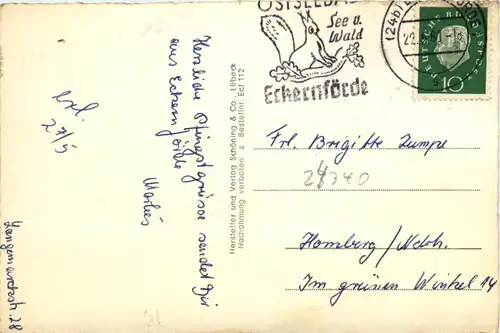 OSTSEEBAD
See u.
Wald
Eckernförde
(24b)
22.
DEUTSCHE BUNDESPOST
10
Herzliche Pfingstgrüsse sendet Dir
aus Eckern
förde
Marlies
27/5
Langemarckstr. 28
Hersteller und Verlag Schöning & Co., Lübeck
Nachahmung verboten s Bestellnr. Ecf 112
Frl. Brigitte Zumpe
24340
Homberg/Ndrh.
Im grünen Winkel 14